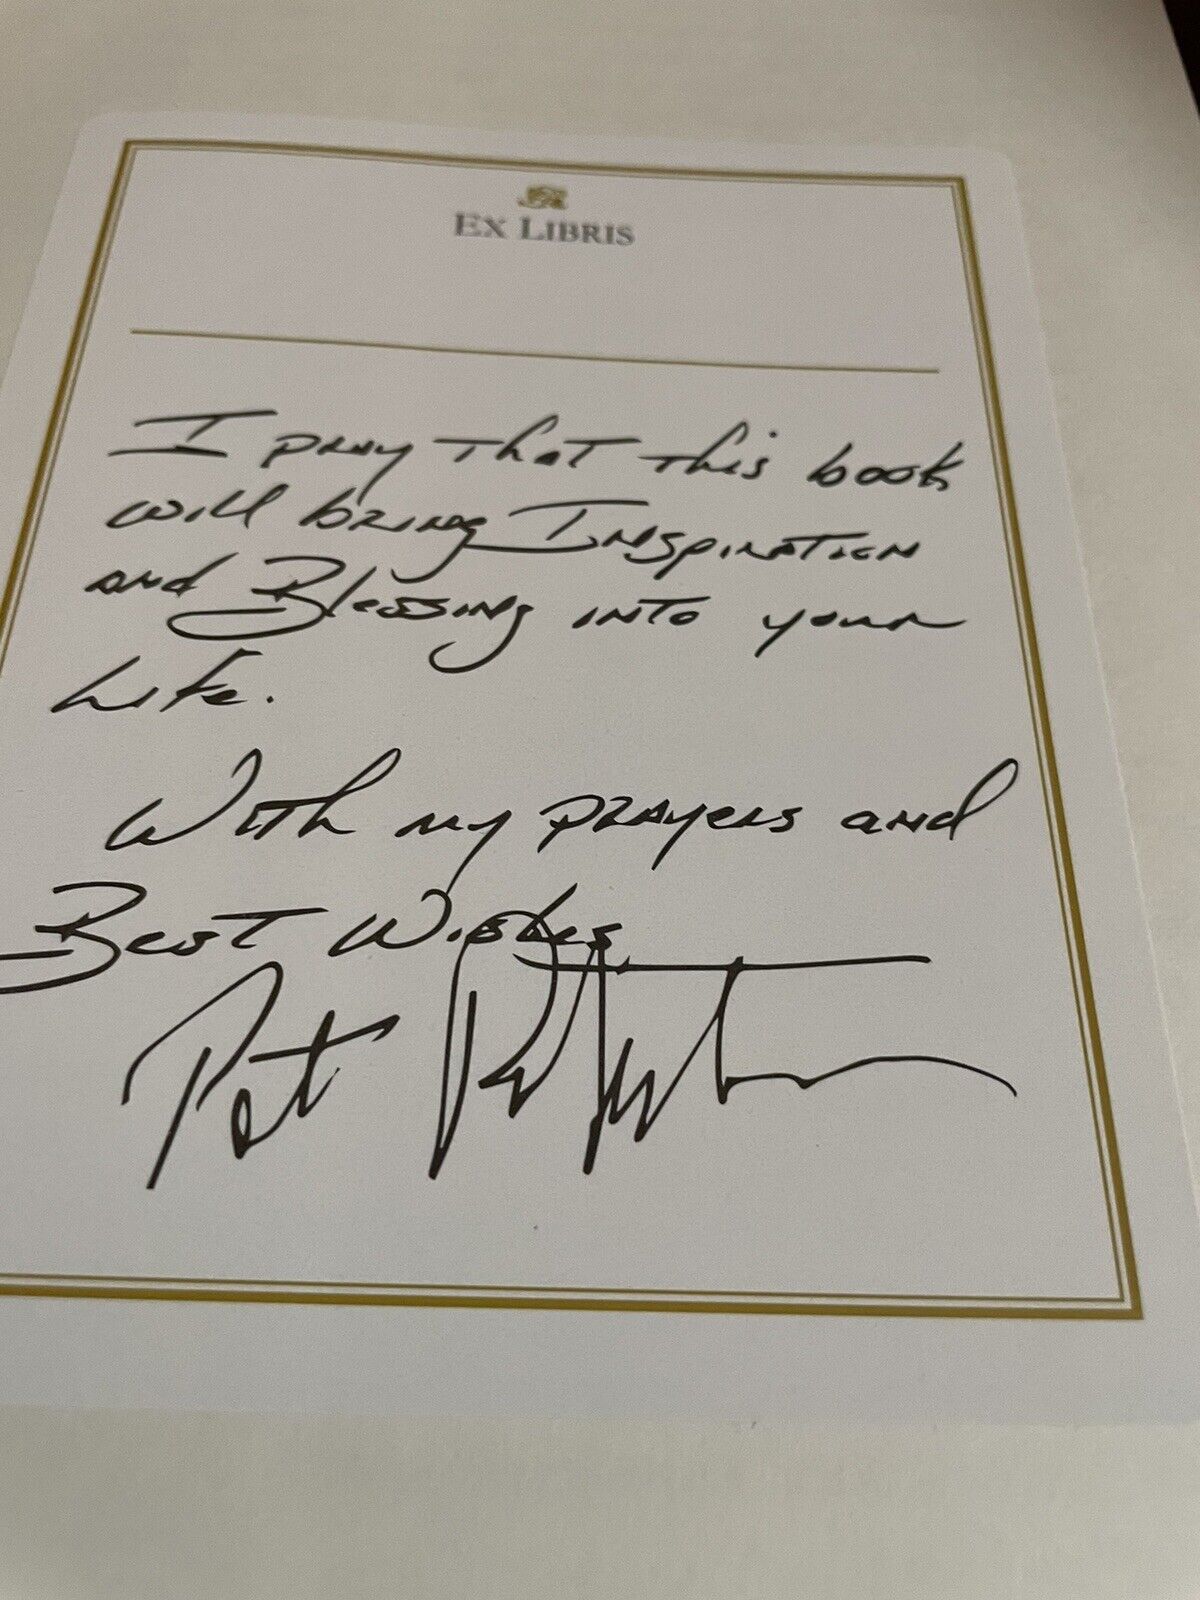 EX LIBRIS
I pray that this book
will bring Inspiration
and Blessing into your
Life.
With my prayers and
Best Wishes,
Pat Robertson